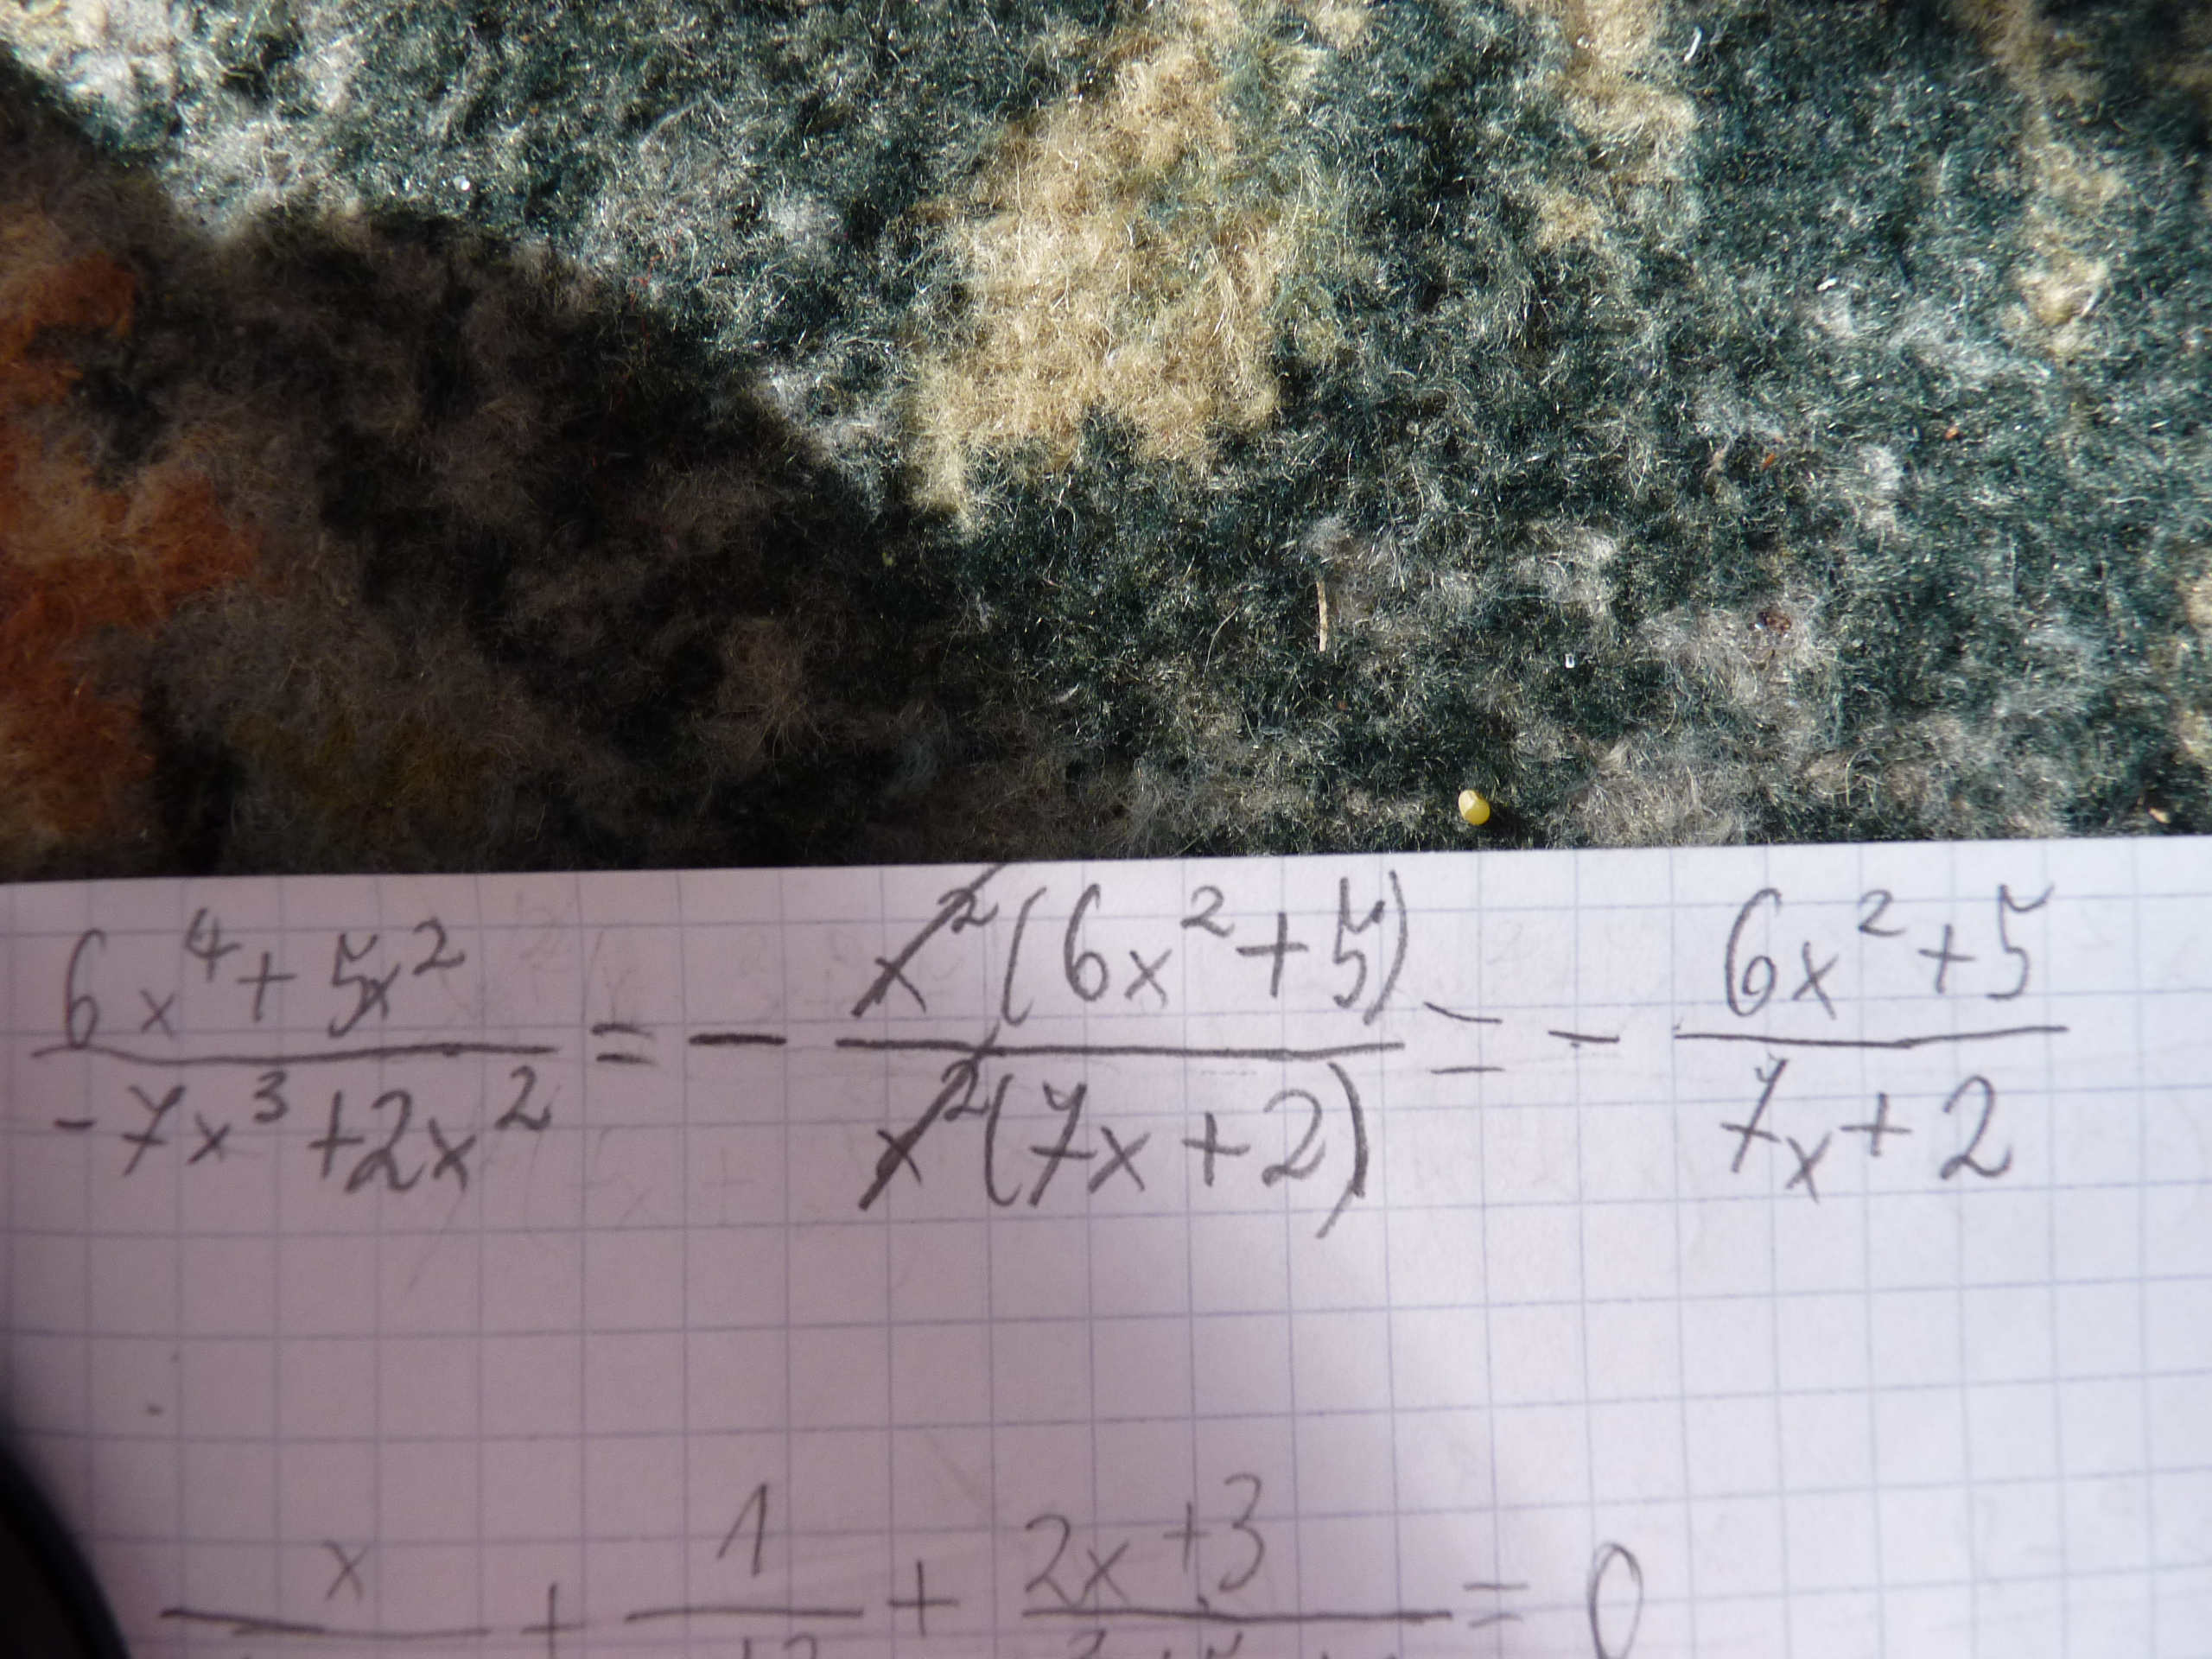 (6x⁴ + 5x²)/(-7x³ + 2x²) = - x²(6x² + 5)/x²(7x + 2) = - (6x² + 5)/(7x + 2)
x/ + 1/ + (2x + 3)/ = 0